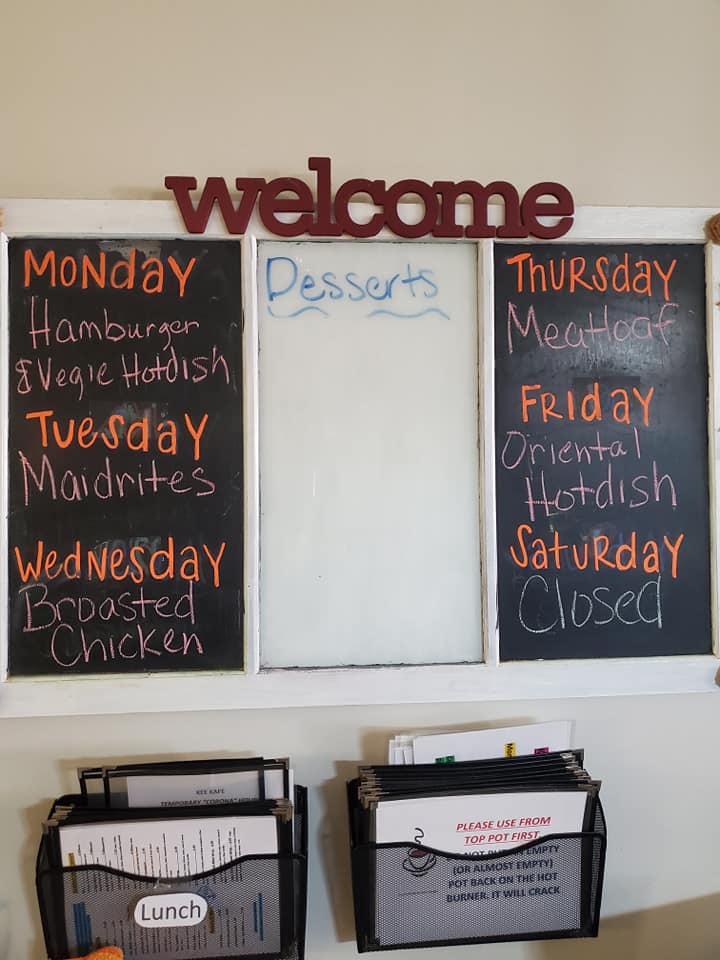 welcome
Monday
Hamburger
& Vegie Hotdish
Tuesday
Maidrites
Wednesday
Broasted
Chicken
Desserts
Thursday
Meatloaf
Friday
Oriental
Hotdish
Saturday
Closed
KEE KAFE
TEMPORARY "CORONA"
Lunch
PLEASE USE FROM
TOP POT FIRST
EMPTY
(OR ALMOST EMPTY)
POT BACK ON THE HOT
BURNER. IT WILL CRACK